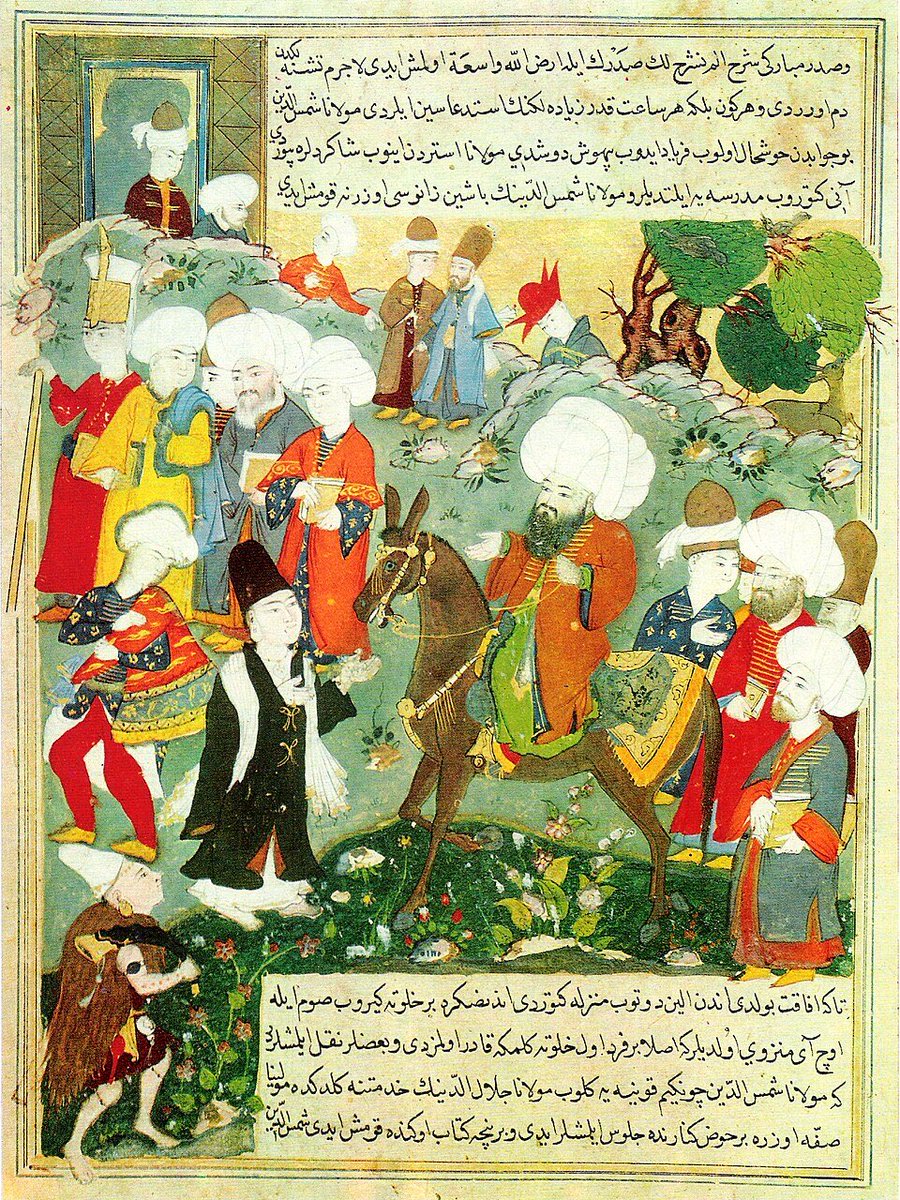 وصدر مباركى شرح الم نشرح لك صدرك ايله ارض الله واسعة اولمش ايدى لاجرم تشنه لكدن
دم اوررردى و هر كون بلكه هر ساعت قدر زياده لكنك استدعاسين ايلردى مولانا شمس الدين
بو جوابدن خوشحال اولوب فرياد ايدوب بيهوش دوشدي مولانا استردن اينوب شاكردلره بيوردي
آنى كتوروب مدرسه يه ايلتديلر و مولانا شمس الدينك باشين زانوسى اوزرنه قومش ايدي
تاكه افاقت بولدى اندن الين دوتوب منزله كتوردى اندنصكره بر خلوته كيروب صوم ايله
اوچ آى منزوي اولديلر كه اصلا بر فرد اول خلوته كلمكه قادر اولمزدى و بعضلر نقل ايلمشلردر
كه مولانا شمس الدين چونكيم قونيه يه كلوب مولانا جلال الدينك خدمتنه كلدكده مولينا
صفه اوزره بر حوض كنارنده جلوس ايلمشلر ايدى و بر نيچه كتاب اوكنده قومش ايدى شمس الدين